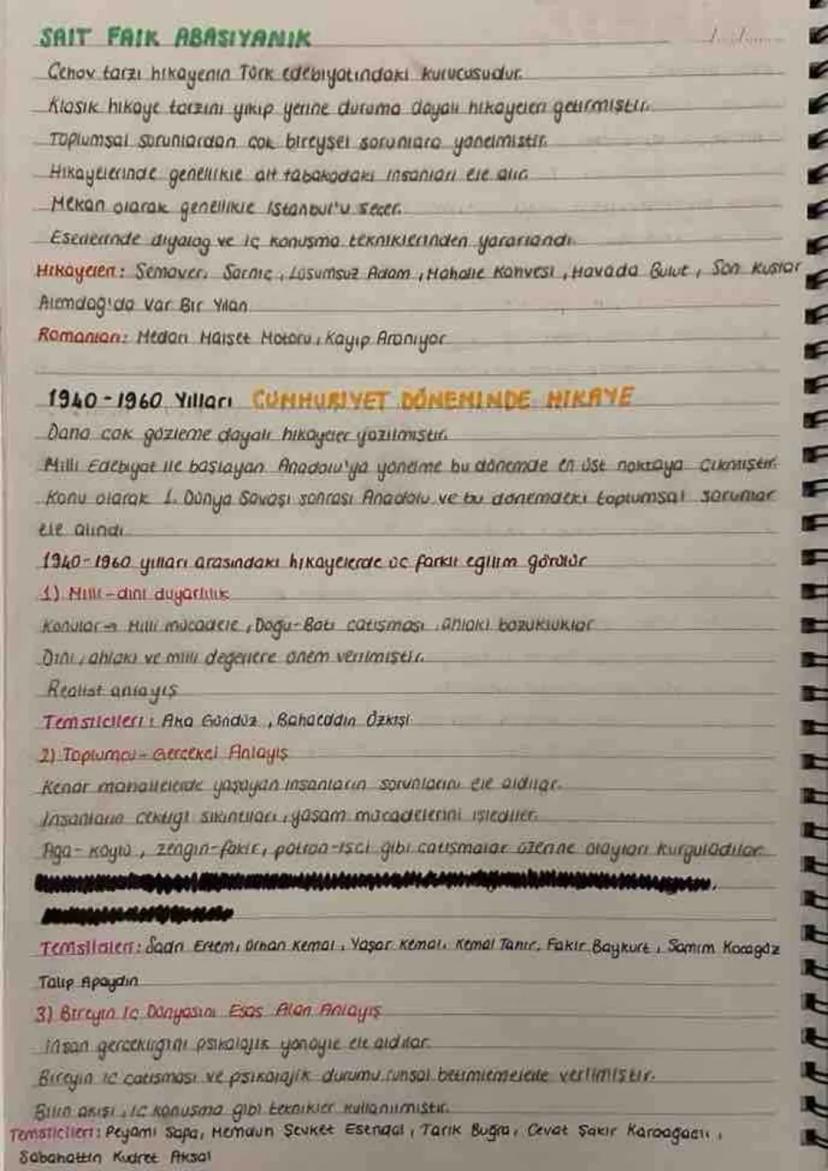 SAIT FAIK ABASIYANIK
Çehov tarzı hikayenin Türk edebiyatındaki kurucusudur.
Klasik hikaye tarzını yıkıp yerine duruma dayalı hikayeleri getirmiştir.
Toplumsal sorunlardan çok bireysel sorunlara yönelmiştir.
Hikayelerinde genellikle alt tabakadaki insanları ele alır.
Mekan olarak genellikle İstanbul'u seçer.
Eserlerinde diyalog ve iç konuşma tekniklerinden yararlandı.
Hikayeleri: Semaver, Sarnıç, Lüsumsuz Adam, Mahalle Kahvesi, Havada Bulut, Son Kuşlar
Alemdağ'da Var Bir Yılan
Romanları: Medarı Maişet Motoru, Kayıp Aranıyor
1940-1960 Yılları CUMHURİYET DÖNEMİNDE HİKAYE
Daha çok gözleme dayalı hikayeler yazılmıştır.
Milli Edebiyat ile başlayan Anadolu'ya yönelme bu dönemde en üst noktaya çıkmıştır.
Konu olarak 1. Dünya Savaşı sonrası Anadolu ve bu dönemdeki toplumsal sorunlar
ele alındı
1940-1960 yılları arasındaki hikayelerde üç farklı eğilim görülür
1) Milli-dini duyarlılık
Konular→ Milli mücadele, Doğu-Batı çatışması, ahlaki bozukluklar
Dini, ahlaki ve milli değerlere önem verilmiştir.
Realist anlayış
Temsilcileri: Aka Gündüz, Bahaeddin Özkişi
2) Toplumcu-Gerçekçi Anlayış
Kenar mahallelerde yaşayan insanların sorunlarını ele aldılar.
İnsanların çektiği sıkıntıları, yaşam mücadelerini işlediler.
Ağa-köylü, zengin-fakir, patron-işçi gibi çatışmalar üzerine olayları kurguladılar.
Temsilcileri: Sadri Ertem, Orhan Kemal, Yaşar Kemal, Kemal Tahir, Fakir Baykurt, Samim Kocagöz
Talip Apaydın
3) Bireyin İç Dünyasını Esas Alan Anlayış
İnsan gerçekliğini psikolojik yönüyle ele aldılar.
Bireyin iç çatışması ve psikolojik durumu ruhsal betimlemelerle verilmiştir.
Bilin akışı, iç konuşma gibi teknikler kullanılmıştır.
Temsilcileri: Peyami Safa, Memduh Şevket Esendal, Tarık Buğra, Cevat Şakir Karaağaçlı,
Sabahattin Kudret Aksal